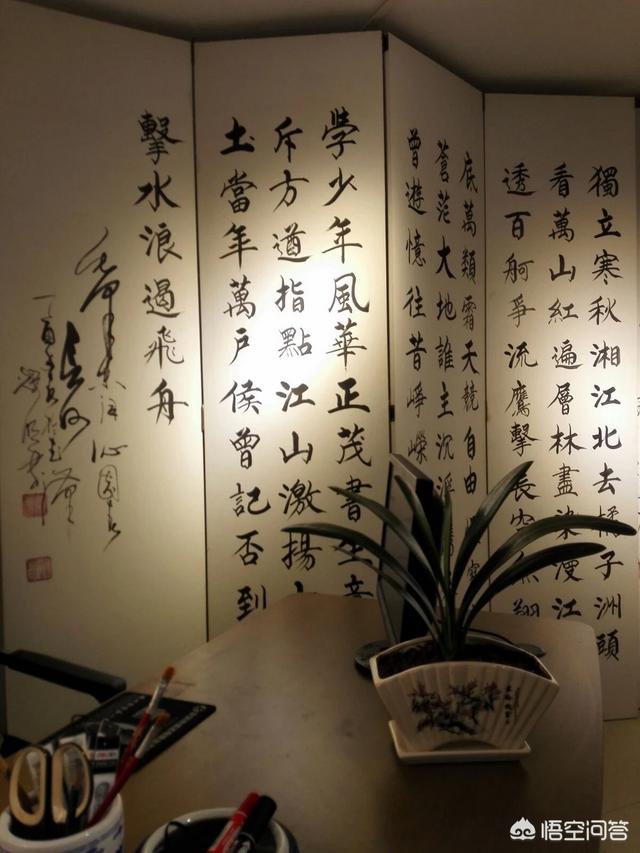 獨立寒秋湘江北去橘子洲頭
看萬山紅遍層林盡染漫江
透百舸爭流鷹擊長空魚翔
底萬類霜天競自由
蒼茫大地誰主沉浮
曾遊憶往昔崢嶸
學少年風華正茂書生意
斥方遒指點江山激揚
土當年萬戶侯曾記否到
擊水浪遏飛舟
沁園春
長沙
悟空问答